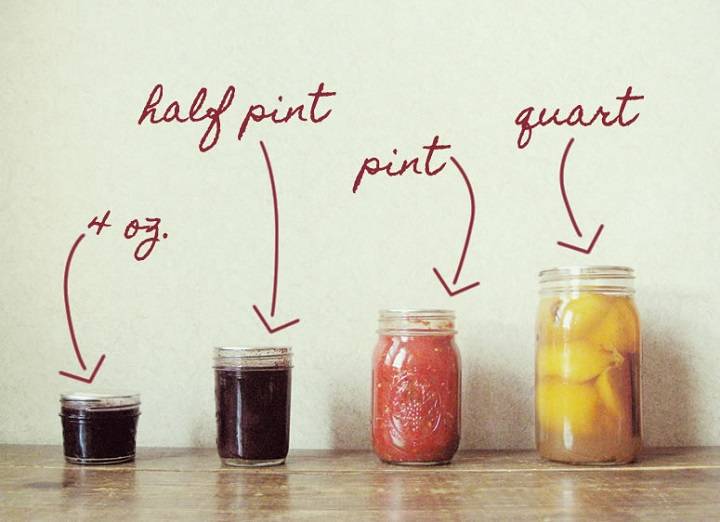 half pint
quart
pint
4 oz.